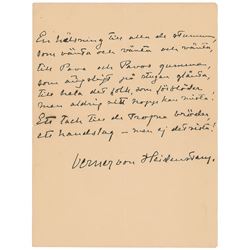 En hälsning till alla de stumma,
som vänta och vänta och vänta,
till Pavo och Pavos gumma,
som på stugan glänta,
till hela det folk, som förblöder
men aldrig sitt hopp kan mista!
Ett tack till de tropna bröder,
ett handslag – men ej det sista!
Verner von Heidenstam.